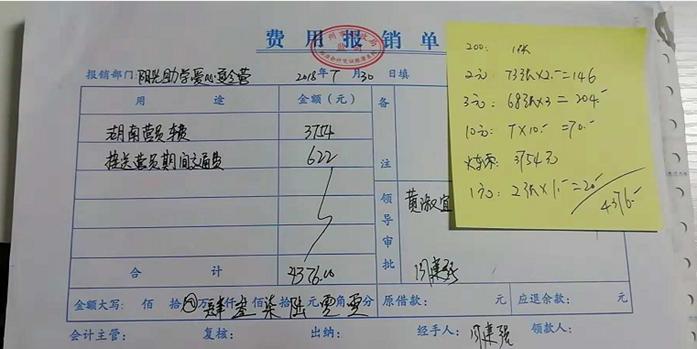 费用报销单
报销部门：阳光助学爱心夏令营 2018年7月30日填
用途 金额（元） 备注
湖南营员车费 3754
接送营员期间交通费 622
领导审批
黄淑宜
周建强
合计 4376.00
金额大写： 佰 拾 万 肆仟 叁佰 柒拾 陆元 零角 零分 原借款： 元 应退余款： 元
会计主管： 复核： 出纳： 经手人： 周建强 领款人：
200: 1张
2元: 73张×2.-=146
3元: 68张×3=204.-
10元: 7×10.-=70.-
火车票: 3754元
1元: 2张×1.-=2.-
4376.-